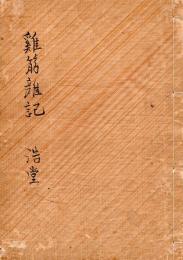 雞筋雜記
浩堂